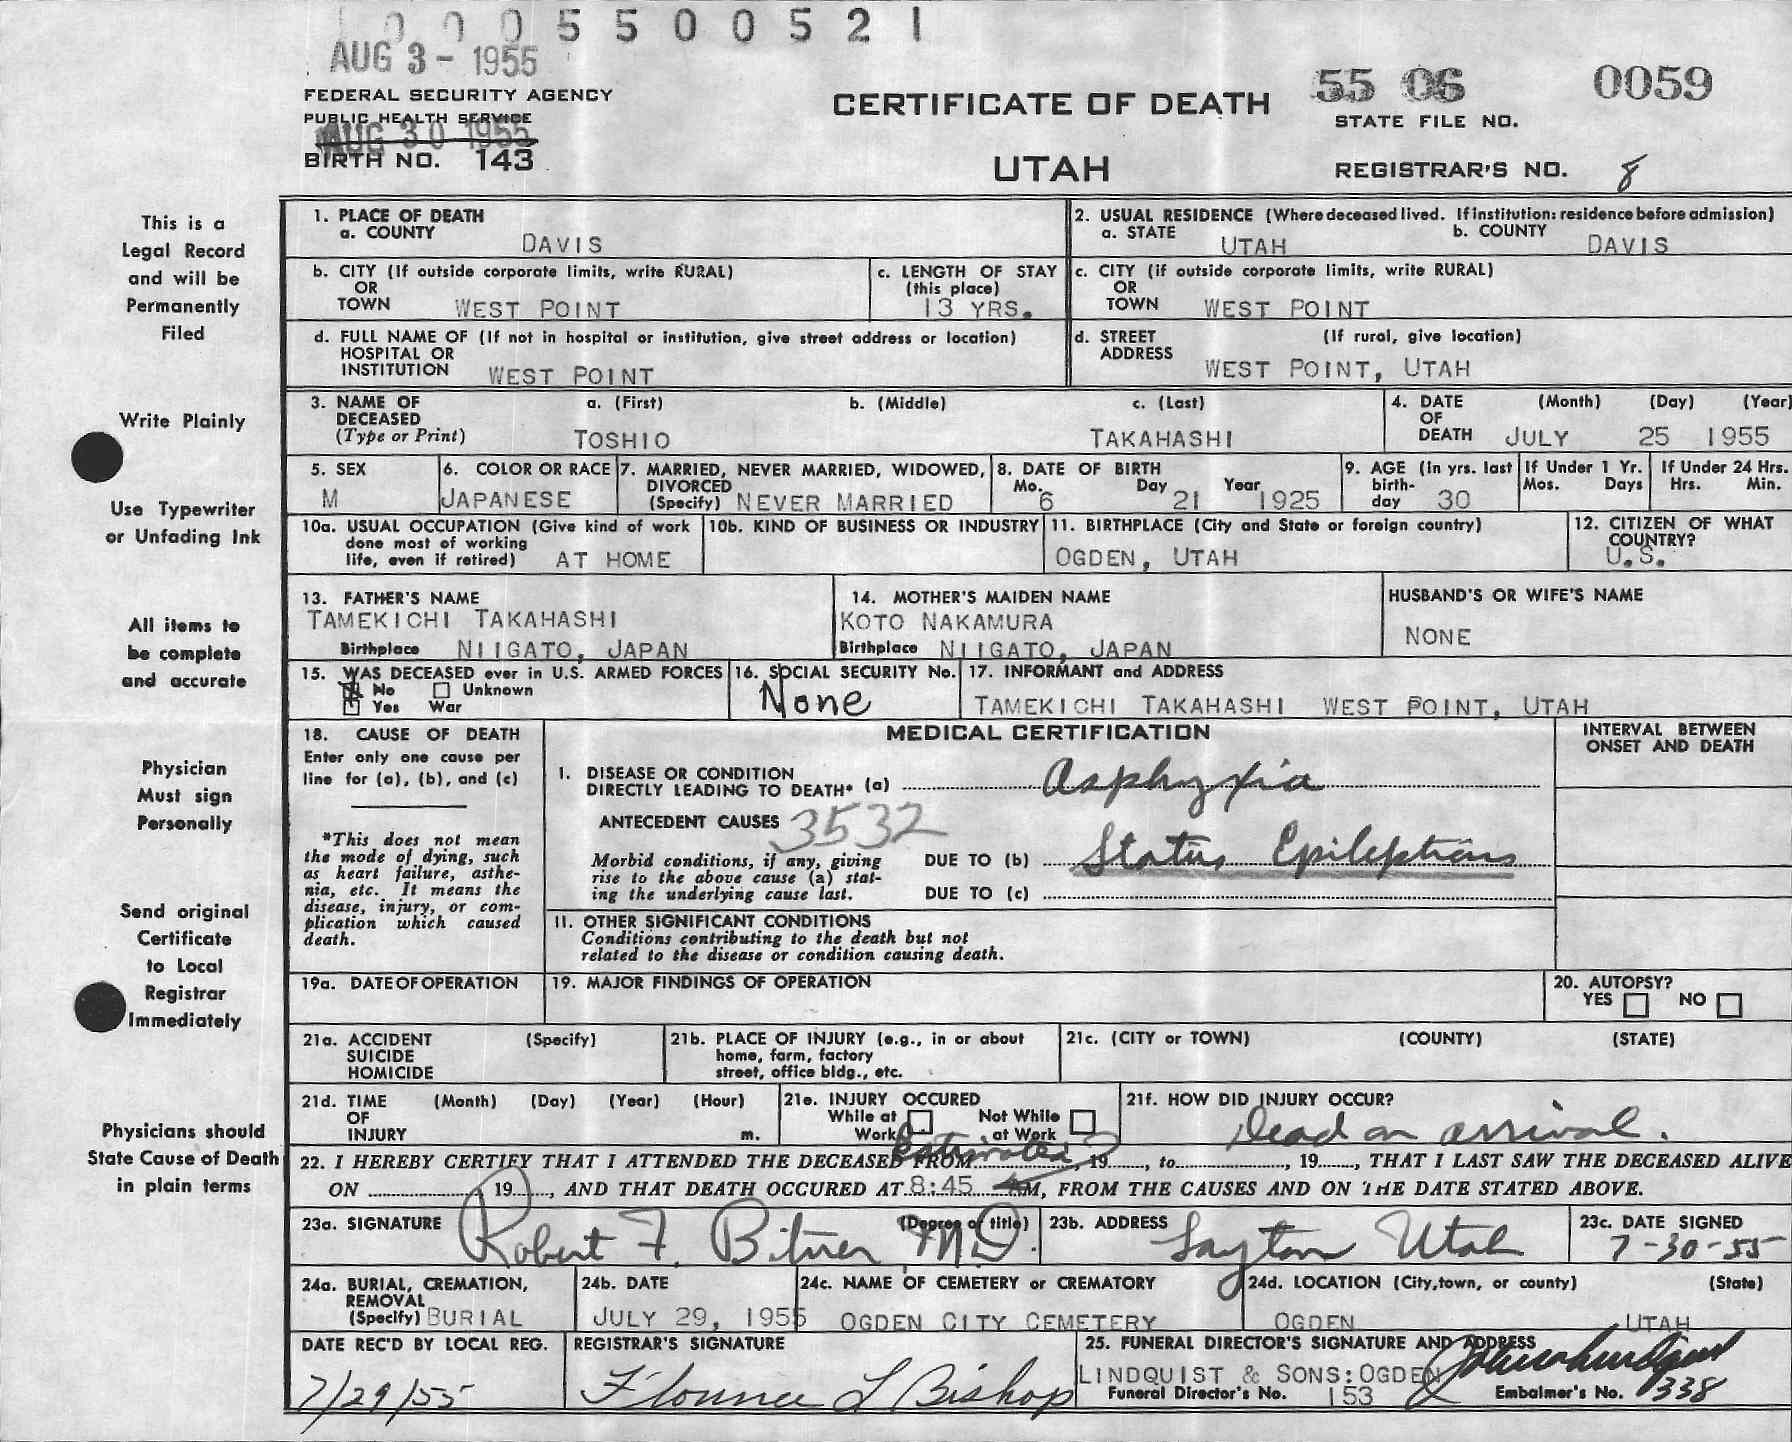 0005500521
AUG 3 - 1955
FEDERAL SECURITY AGENCY
PUBLIC HEALTH SERVICE
AUG 30 1955
BIRTH NO. 143
CERTIFICATE OF DEATH
UTAH
55 06 0059
STATE FILE NO.
REGISTRAR'S NO. 8
This is a
Legal Record
and will be
Permanently
Filed
Write Plainly
Use Typewriter
or Unfading Ink
All items to
be complete
and accurate
Physician
Must sign
Personally
Send original
Certificate
to Local
Registrar
Immediately
Physicians should
State Cause of Death
in plain terms
1. PLACE OF DEATH
a. COUNTY DAVIS
2. USUAL RESIDENCE (Where deceased lived. If institution: residence before admission)
a. STATE UTAH b. COUNTY DAVIS
b. CITY (If outside corporate limits, write RURAL)
OR
TOWN WEST POINT
c. LENGTH OF STAY
(this place)
13 YRS.
c. CITY (if outside corporate limits, write RURAL)
OR
TOWN WEST POINT
d. FULL NAME OF (If not in hospital or institution, give street address or location)
HOSPITAL OR
INSTITUTION WEST POINT
d. STREET (If rural, give location)
ADDRESS
WEST POINT, UTAH
3. NAME OF a. (First) b. (Middle) c. (Last)
DECEASED
(Type or Print) TOSHIO TAKAHASHI
4. DATE (Month) (Day) (Year)
OF
DEATH JULY 25 1955
5. SEX
M
6. COLOR OR RACE
JAPANESE
7. MARRIED, NEVER MARRIED, WIDOWED,
DIVORCED
(Specify) NEVER MARRIED
8. DATE OF BIRTH
Mo. Day Year
6 21 1925
9. AGE (In yrs. last
birth-
day 30
If Under 1 Yr.
Mos. Days
If Under 24 Hrs.
Hrs. Min.
10a. USUAL OCCUPATION (Give kind of work
done most of working
life, even if retired) AT HOME
10b. KIND OF BUSINESS OR INDUSTRY
11. BIRTHPLACE (City and State or foreign country)
OGDEN, UTAH
12. CITIZEN OF WHAT
COUNTRY?
U.S.
13. FATHER'S NAME
TAMEKICHI TAKAHASHI
Birthplace NIIGATO, JAPAN
14. MOTHER'S MAIDEN NAME
KOTO NAKAMURA
Birthplace NIIGATO, JAPAN
HUSBAND'S OR WIFE'S NAME
NONE
15. WAS DECEASED ever in U.S. ARMED FORCES
No Unknown
Yes War
16. SOCIAL SECURITY No.
None
17. INFORMANT and ADDRESS
TAMEKICHI TAKAHASHI WEST POINT, UTAH
18. CAUSE OF DEATH
Enter only one cause per
line for (a), (b), and (c)
*This does not mean
the mode of dying, such
as heart failure, asthe-
nia, etc. It means the
disease, injury, or com-
plication which caused
death.
MEDICAL CERTIFICATION
INTERVAL BETWEEN
ONSET AND DEATH
I. DISEASE OR CONDITION
DIRECTLY LEADING TO DEATH* (a) Asphyxia
ANTECEDENT CAUSES 3532
Morbid conditions, if any, giving
rise to the above cause (a) stat-
ing the underlying cause last.
DUE TO (b) Status Epilepticus
DUE TO (c)
II. OTHER SIGNIFICANT CONDITIONS
Conditions contributing to the death but not
related to the disease or condition causing death.
19a. DATE OF OPERATION
19. MAJOR FINDINGS OF OPERATION
20. AUTOPSY?
YES NO
21a. ACCIDENT (Specify)
SUICIDE
HOMICIDE
21b. PLACE OF INJURY (e.g., in or about
home, farm, factory
street, office bldg., etc.
21c. (CITY or TOWN) (COUNTY) (STATE)
21d. TIME (Month) (Day) (Year) (Hour)
OF
INJURY m.
21e. INJURY OCCURED
While at Not While
Work at Work
21f. HOW DID INJURY OCCUR?
Dead on arrival.
estimated
22. I HEREBY CERTIFY THAT I ATTENDED THE DECEASED FROM , 19 , to , 19 , THAT I LAST SAW THE DECEASED ALIVE
ON , 19 , AND THAT DEATH OCCURED AT 8:45 AM, FROM THE CAUSES AND ON THE DATE STATED ABOVE.
23a. SIGNATURE (Degree of title)
Robert F. Bitner M.D.
23b. ADDRESS
Layton Utah
23c. DATE SIGNED
7-30-55
24a. BURIAL, CREMATION,
REMOVAL
(Specify) BURIAL
24b. DATE
JULY 29, 1955
24c. NAME OF CEMETERY or CREMATORY
OGDEN CITY CEMETERY
24d. LOCATION (City,town, or county) (State)
OGDEN UTAH
DATE REC'D BY LOCAL REG.
7/29/55
REGISTRAR'S SIGNATURE
Flounce L Bishop
25. FUNERAL DIRECTOR'S SIGNATURE AND ADDRESS
LINDQUIST & SONS: OGDEN
Funeral Director's No. 153
Embalmer's No. 338